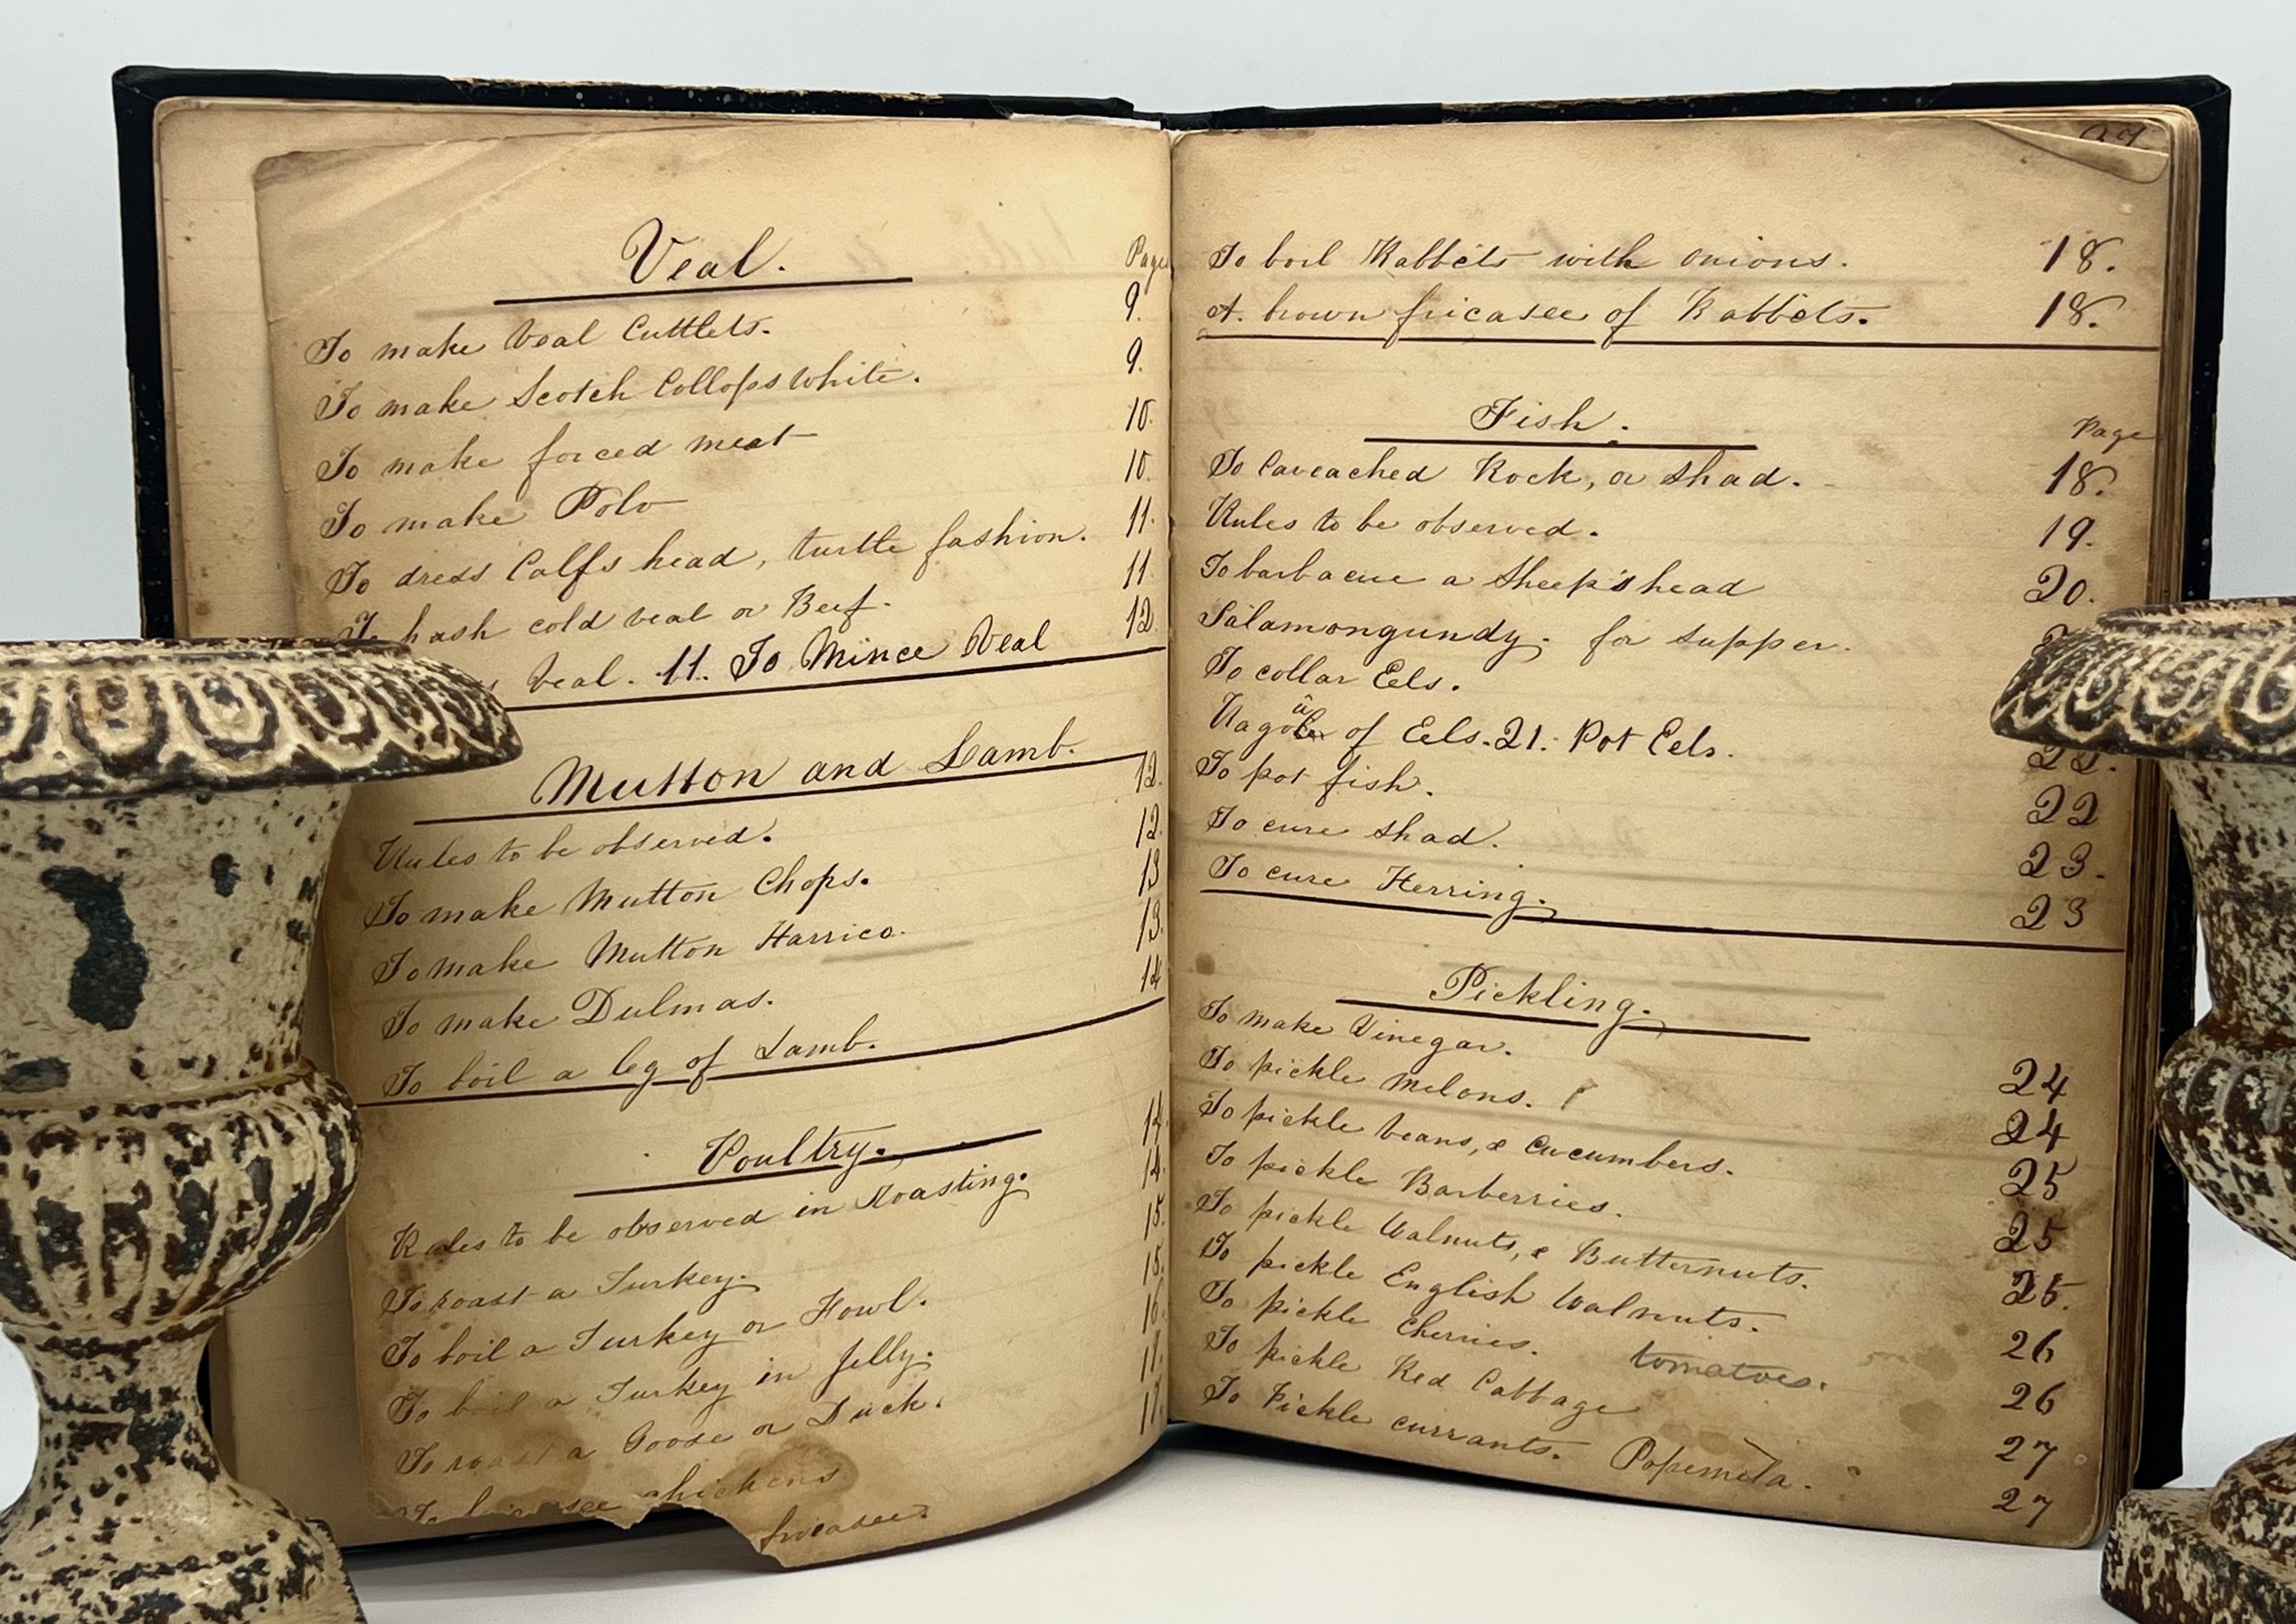 Veal.
Page
To make Veal Cuttlets. 9.
To make Scotch Collops White. 9.
To make forced meat 10.
To make Polo 10.
To dress Calfs head, turtle fashion. 11.
To hash cold veal or Beef. 11.
Veal. 11. To Mince Veal 12.
Mutton and Lamb.
Rules to be observed. 12.
To make Mutton Chops. 12.
To make Mutton Harrico. 13
To make Dulmas. 13.
To boil a leg of Lamb. 14
Poultry.
Rules to be observed in Roasting. 14.
To roast a Turkey. 14.
To boil a Turkey or Fowl. 15.
To boil a Turkey in jelly. 15.
To roast a Goose or Duck. 16.
To chickens
fricasee
To boil Rabbits with onions. 18.
A. brown fricasee of Rabbits. 18.
Fish.
Page
To Caveached Rock, or Shad. 18.
Rules to be observed. 19.
To barbacue a Sheep's head 20.
Salamongundy. for supper.
To collar Eels.
of Eels. 21. Pot Eels. 22.
To pot fish. 22
To cure Shad. 23.
To cure Herring. 23
Pickling.
To make Vinegar. 24
To pickle Melons. 24
To pickle beans, & Cucumbers. 25
To pickle Barberries. 25
To pickle Walnuts, & Butternuts. 25.
To pickle English Walnuts. 26
To pickle Cherries. tomatoes. 26
To pickle Red Cabbage 27
To Pickle currants. 27